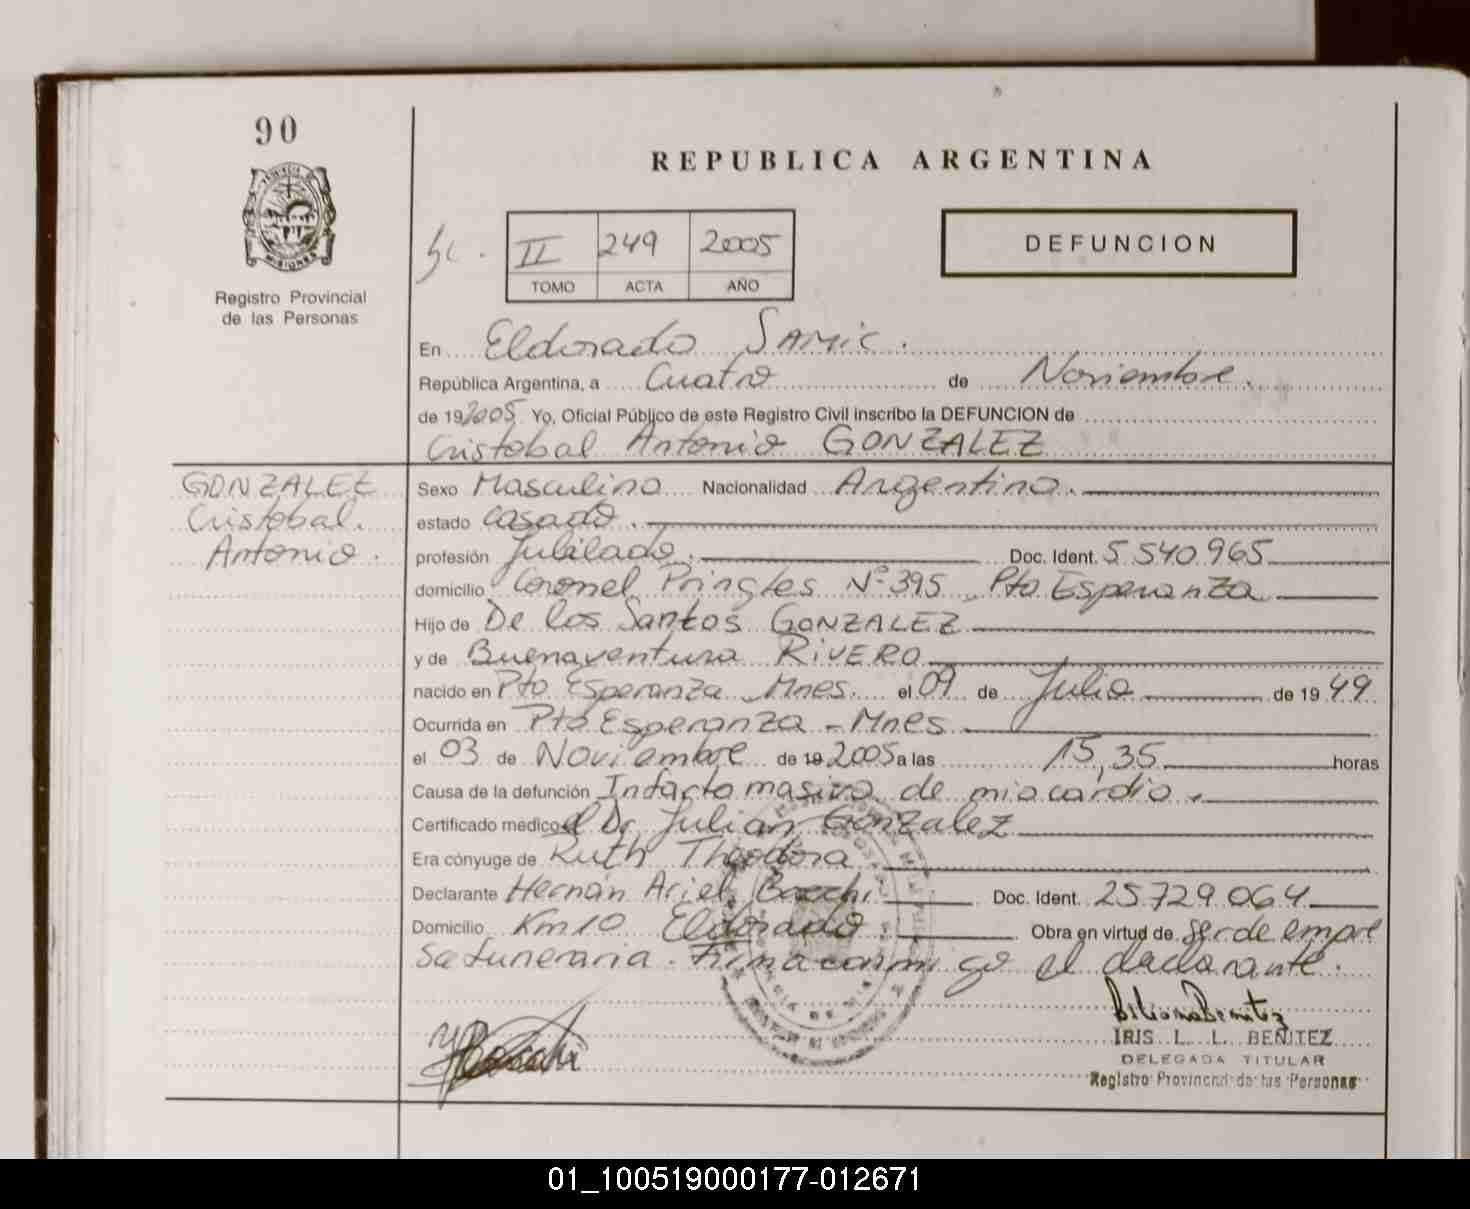 90
REPUBLICA ARGENTINA
Registro Provincial
de las Personas
II 249 2005
TOMO ACTA AÑO
DEFUNCION
En Eldorado SAMic.
República Argentina, a Cuatro de Noviembre.
de 19 2005 Yo, Oficial Público de este Registro Civil inscribo la DEFUNCION de
Cristobal Antonio GONZALEZ
GONZALEZ
Cristobal.
Antonio.
Sexo Masculino Nacionalidad Argentina.
estado casado.
profesión Jubilado. Doc. Ident. 5.540.965
domicilio Coronel Pringles Nº 395 Pto Esperanza
Hijo de De los Santos GONZALEZ
y de Buenaventura RIVERO
nacido en Pto Esperanza - Mnes. el 09 de Julio de 19 49
Ocurrida en Pto Esperanza - Mnes
el 03 de Noviembre de 19 2005 a las 15,35 horas
Causa de la defunción Infarto masivo de miocardio.
Certificado médico del Dr Julian Gonzalez
Era cónyuge de Ruth Theodora
Declarante Hernán Ariel Doc. Ident. 25.729.064
Domicilio Km 10 Eldorado. Obra en virtud de ser de empre
sa funeraria. Firma conmigo el declarante.
IRIS L. L. BENITEZ
DELEGADA TITULAR
Registro Provincial de las Personas
01_100519000177-012671